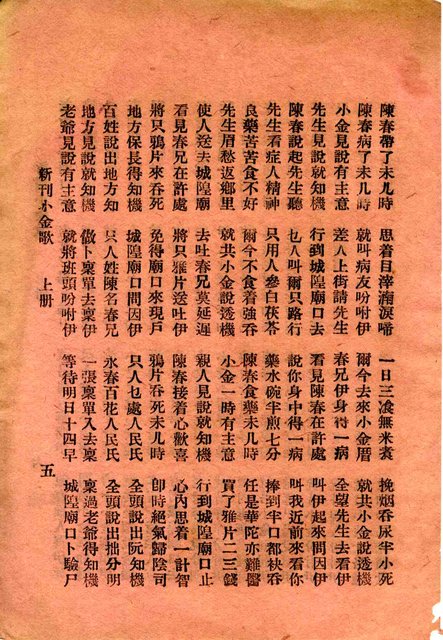 陳春帶了未几時 思着目滓湳淚啼 一日三飡無米袁 挽烟吞尿半小死
陳春病了未几時 就叫病友吩咐伊 爾今去來小金厝 就共小金說透機
小金見說有主意 差人上街請先生 春兄伊身得一病 全望先生去看伊
先生見說就知機 行到城隍廟口去 看見陳春在許處 叫伊起來問因伊
陳春說起先生聽 乜人叫爾只路行 說你身中得一病 叫我近前來看你
先生看症人精神 只用人參白茯苓 藥水碗半煎七分 捧到半口都袂吞
良藥苦苦食不好 爾今不食着強吞 陳春食藥未几時 任是華陀亦難醫
先生眉愁返鄉里 就共小金說透機 小金一時有主意 買了雅片二三錢
使人送去城隍廟 去吐春兄莫延遲 親人見說就知機 行到城隍廟口止
看見春兄在許處 將只雅片送吐伊 陳春接着心歡喜 心內思着一計智
將只鴉片來吞死 免得廟口來現尸 鴉片吞死未几時 即時絕氣歸陰司
地方保長得知機 城隍廟口問因伊 只人乜處人民氏 全頭說出阮知機
百姓說出地方知 只人姓陳名春兄 永春百花人民氏 全頭說出拙分明
地方見說就知機 做卜稟單去稟伊 一張稟單入去稟 稟過老爺得知機
老爺見說有主意 就將班頭吩咐伊 等待明日十四早 城隍廟口卜驗尸
新刊小金歌 上册 五